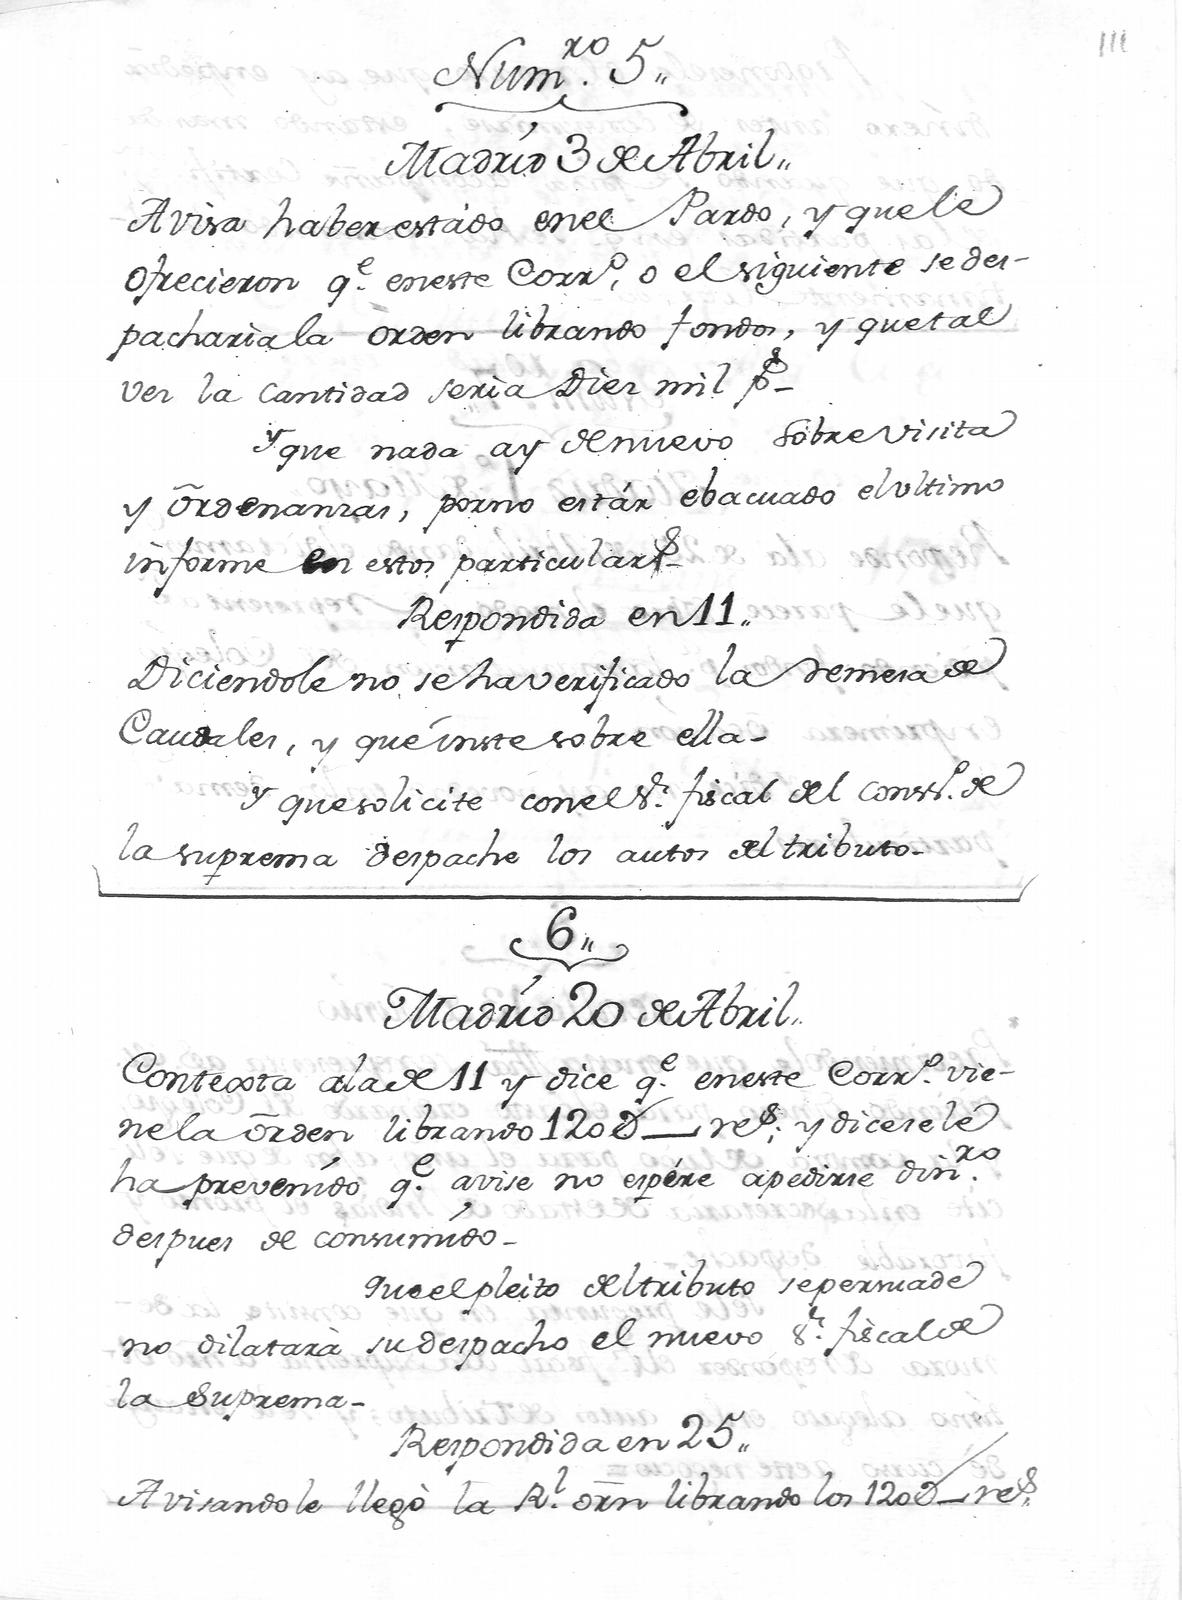 111
Num.ro 5,,
Madríd 3 de Abril,,
Avisa haber estádo enel Pardo, y que le
ofrecieron q.e eneste Corr.o, o el siguiente se des-
pacharìa la òrden librando fondos, y que tal
ves la cantidad serìa Dies mil p.s-
Y que nada ay de nuevo sobre Visita
y Ōrdenanzas, porno estár ebacuado el ultimo
informe en estos particulares-
Respondida en 11,,
Diciendole no se ha verificado la remesa de
Caudales, y que ínste sobre ella-
Y que solicite con el S.r fiscal del Cons.o de
la suprema despache los autos del tributo-
6,,
Madríd 20 de Abril,,
Contexta ala de 11 y dice q.e eneste Corr.o vie-
ne la Ōrden librando 120 D— re.s; y dice se le
ha prevenído q.e avise no espére apedirse din.ro
despues de consumído-
Que el pleito del tributo se persuade
no dilatarà su despacho el nuevo S.r fiscal de
la Suprema-
Respondida en 25,,
Avisandole llegò la R.l orn librando los 120 D— re.s